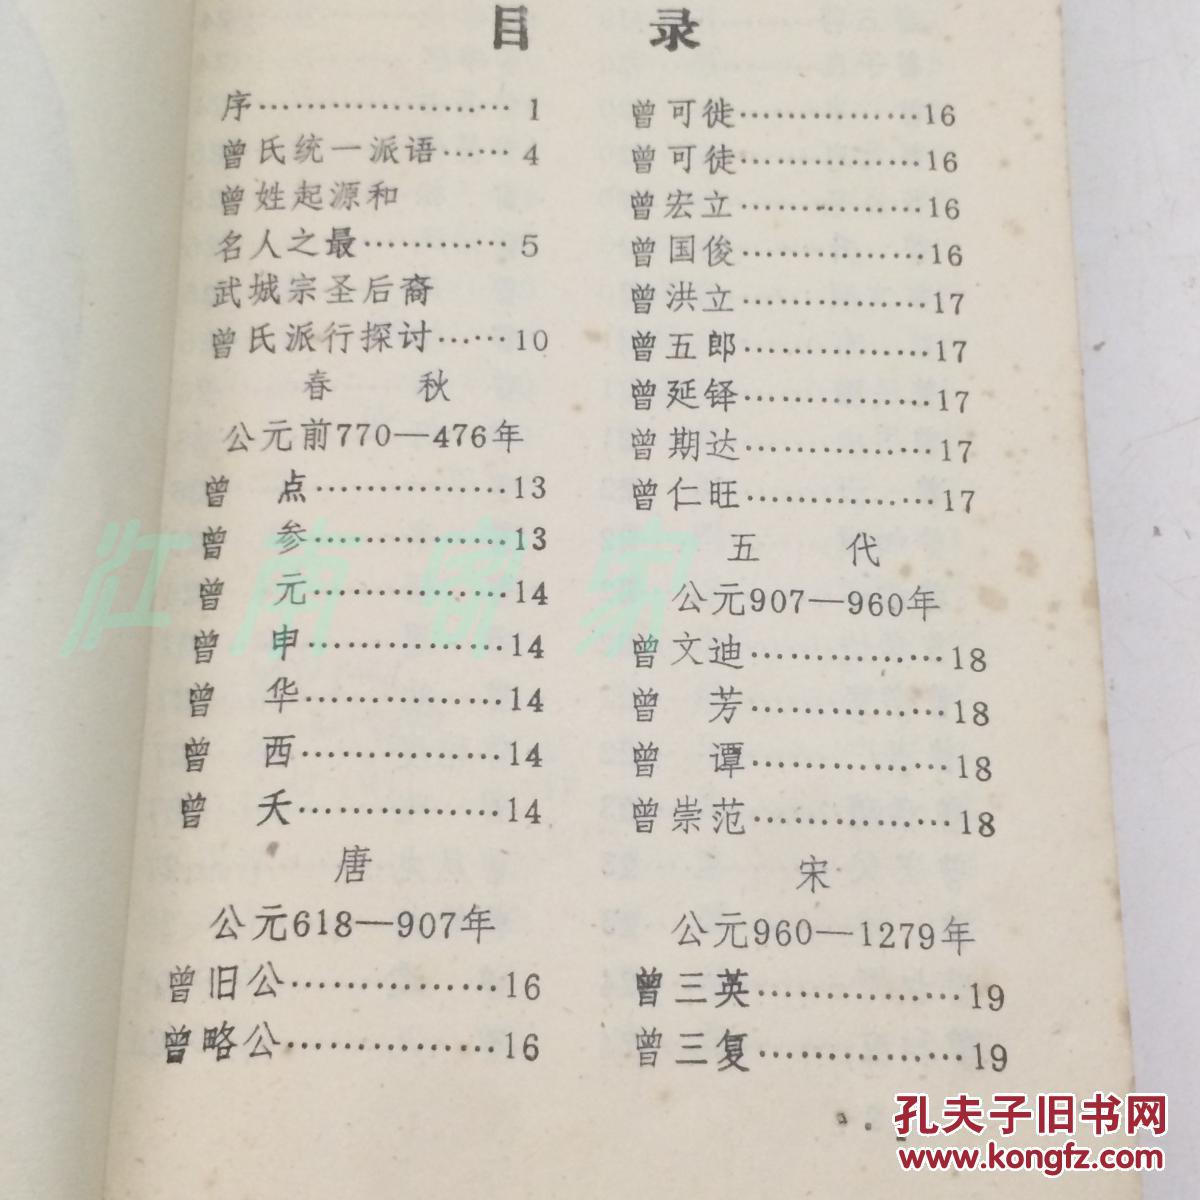 目 录
序………………… 1
曾氏统一派语…… 4
曾姓起源和
名人之最………… 5
武城宗圣后裔
曾氏派行探讨……10
春 秋
公元前770—476年
曾 点……………13
曾 参……………13
曾 元……………14
曾 申……………14
曾 华……………14
曾 西……………14
曾 夭……………14
唐
公元618—907年
曾旧公……………16
曾略公……………16
曾可徙……………16
曾可徒……………16
曾宏立……………16
曾国俊……………16
曾洪立……………17
曾五郎……………17
曾延铎……………17
曾期达……………17
曾仁旺……………17
五 代
公元907—960年
曾文迪……………18
曾 芳……………18
曾 谭……………18
曾崇范……………18
宋
公元960—1279年
曾三英……………19
曾三复……………19
江南客家
孔夫子旧书网
www.kongfz.com